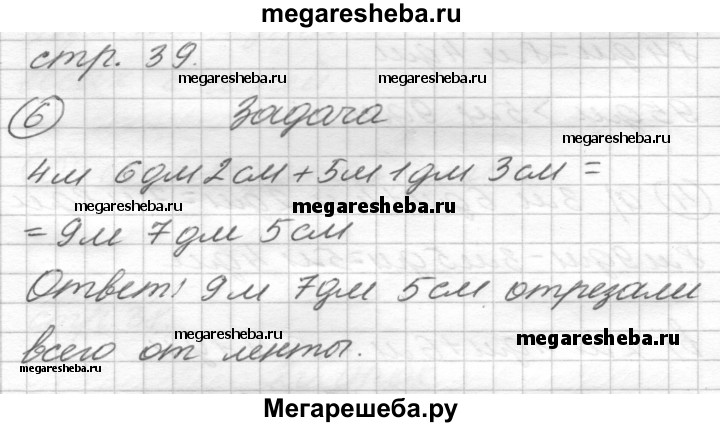 megaresheba.ru
стр. 39.
megaresheba.ru megaresheba.ru
6 Задача
megaresheba.ru
4м 6дм 2см + 5м 1дм 3см =
megaresheba.ru megaresheba.ru
= 9м 7дм 5см
Ответ: 9м 7дм 5см отрезали
megaresheba.ru megaresheba.ru
всего от ленты.
megaresheba.ru
Мегарешеба.ру